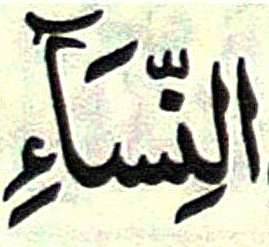 النِّسَآءِ